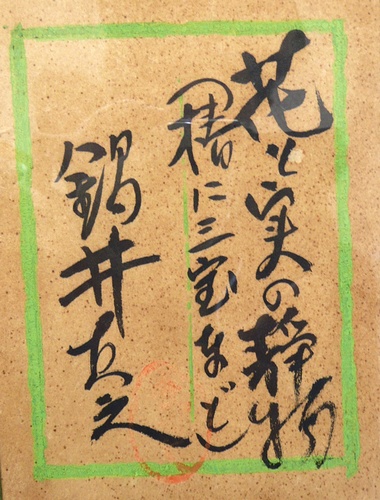 花と実の静物
(椿に三宝など)
鍋井克之